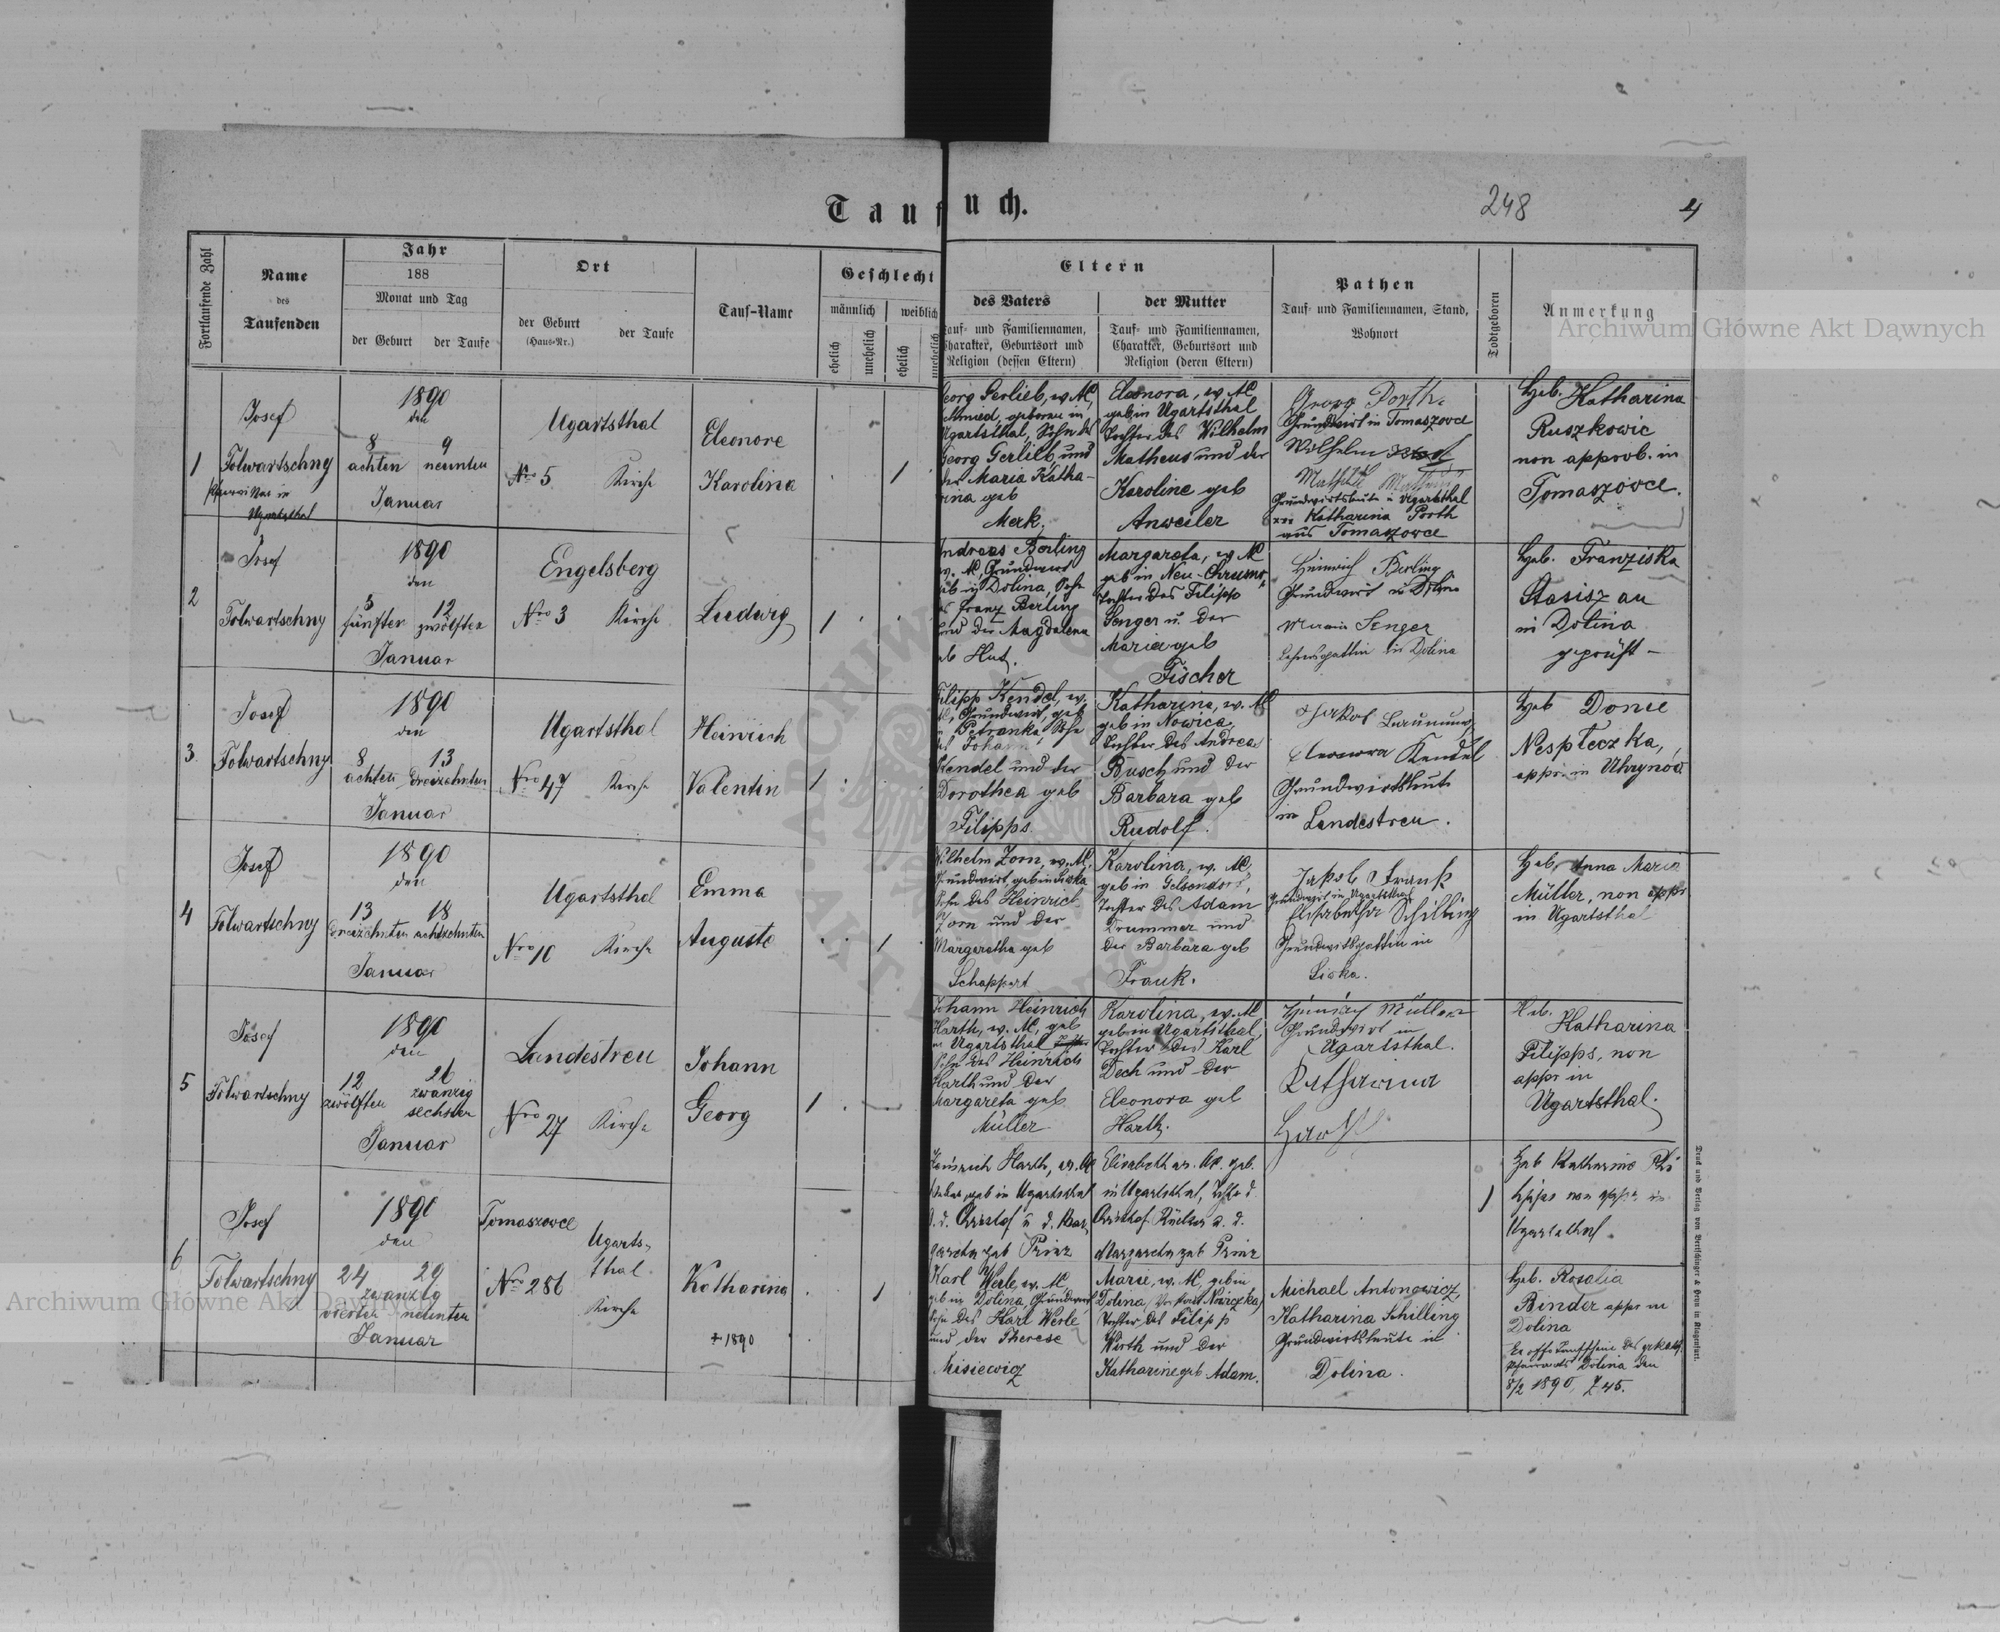 Taufbuch.
248
4
Fortlaufende Zahl
Name
des
Taufenden
Jahr
188
Monat und Tag
der Geburt
der Taufe
Ort
der Geburt
(Haus-Nr.)
der Taufe
Tauf-Name
Geschlecht
männlich
weiblich
ehelich
unehelich
ehelich
unehelich
Eltern
des Vaters
Tauf- und Familiennamen,
Charakter, Geburtsort und
Religion (dessen Eltern)
der Mutter
Tauf- und Familiennamen,
Charakter, Geburtsort und
Religion (deren Eltern)
Pathen
Tauf- und Familiennamen, Stand,
Wohnort
Todtgeboren
Anmerkung
Archiwum Główne Akt Dawnych
1
Josef
Tolwartschny
in
Ugartsthal
1890
den
8 9
achten neunten
Januar
Ugartsthal
Nro 5 Kirche
Eleonore
Karolina
1
Georg Gerlieb, ev. AC,
Schmied, geboren in
Ugartsthal, Sohn des
Georg Gerlieb und
der Maria Katha-
rina geb
Merk.
Eleonora, ev. AC
geb. in Ugartsthal
Tochter des Wilhelm
Matheus und der
Karoline geb
Anweiler
Georg Porth.
Grundwirt in Tomaszovce
Wilhelm
Grundwirtsleute in Ugartsthal
Katharina Porth
aus Tomaszovce
Heb. Katharina
Ruszkowic
non approb. in
Tomaszovce.
2
Josef
Tolwartschny
1890
den
5 12
fünften zwölften
Januar
Engelsberg
Nro 3 Kirche
Ludwig
1
Andreas Berling
ev. AC, Grundwirt
geb in Dolina, Sohn
des Franz Berling
und der Magdalena
geb Hut.
Margareta, ev. AC
geb in Neu-
Tochter des Filipp
Senger u. der
Maria geb
Fischer
Heinrich Berling
Grundwirt in Dolina
Maria Senger
Lehrersgattin in Dolina
Heb. Franziska
in Dolina
geprüft –
3
Josef
Tolwartschny
1890
den
8 13
achten dreizehnten
Januar
Ugartsthal
Nro 47 Kirche
Heinrich
Valentin
1
Filipp Kendel, ev.
AC, Grundwirt, geb
in Petranka, Sohn
des Johann
Kendel und der
Dorothea geb
Filipps.
Katharina, ev. AC
geb in Nowica,
Tochter des Andreas
Busch und der
Barbara geb
Rudolf.
Jakob
Eleonora Kendel
Grundwirtsleute
in
Landestreu.
Heb Donie
Nespleczka,
appr. in Uhrynow
4
Josef
Tolwartschny
1890
den
13 18
dreizehnten achtzehnten
Januar
Ugartsthal
Nro 10 Kirche
Emma
Auguste
1
Wilhelm Zorn, ev. AC,
Grundwirt, geb in
Sohn des Heinrich
Zorn und der
Margaretha geb
Schappert
Karolina, ev. AC,
geb in Gelsendorf,
Tochter des Adam
Drummer und
der Barbara geb
Frank.
Jakob Frank
Grundwirt in Ugartsthal
Elisabetha Schilling
Grundwirtsgattin in
Heb. Anna Maria
Müller, non appr
in Ugartsthal
5
Josef
Tolwartschny
1890
den
12 26
zwölften zwanzig
sechsten
Januar
Landestreu
Nro 27 Kirche
Johann
Georg
1
Johann Heinrich
Harth, ev. AC, geb
in Ugartsthal
Sohn des Heinrich
Harth und der
Margareta geb
Müller
Karolina, ev. AC
geb in Ugartsthal,
Tochter des Karl
Dech und der
Eleonora geb
Harth.
Heinrich Müller
Grundwirt in
Ugartsthal.
Katharina
Harth
Heb.
Katharina
Filipps, non
appr in
Ugartsthal.
Heinrich Harth, ev. AC
geb in Ugartsthal
S. d. Christof u. d. Mar-
garetha geb Prinz
Elisabeth ev. AC. geb.
in Ugartsthal, Tchtr d.
Christof u. d.
Margaretha geb Prinz
1
Heb Katharina Phi-
lipps non appr in
Ugartsthal.
6
Josef
Tolwartschny
1890
den
24 29
zwanzig
vierten neunten
Januar
Tomaszovce
Nro 286
Ugarts-
thal.
Kirche
Katharina
+ 1890
1
Karl Werle, ev. AC
geb in Dolina, Grundwirt
Sohn des Karl Werle
und der Therese
Misiewicz
Marie, ev. AC, geb in
Dolina,
Tochter des Filipp
Wirth und der
Katharine geb. Adam.
Michael Antonowicz,
Katharina Schilling
Grundwirtsleute in
Dolina.
Heb. Rosalia
Binder appr in
Dolina
Dolina den
8/2 1890, Z 45.
Archiwum Główne Akt Dawnych